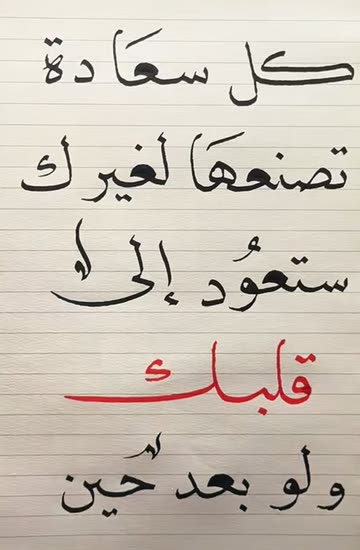 كل سعَادة
تصنعهَا لغيرك
ستعُود إلى
قلبك
ولو بعد حين